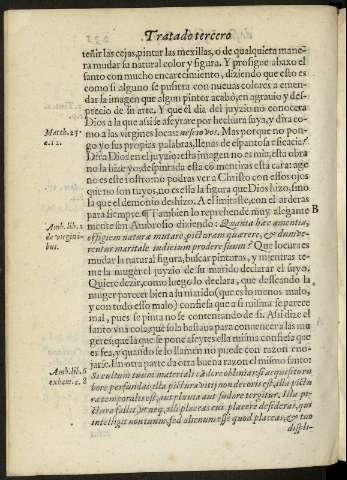 Tratado tercero
teñir las cejas, pintar las mexillas, o de qualquiera mane-
ra mudar su natural color y figura. Y prosigue abaxo el
santo con mucho encarecimiento, diziendo que esto es
como si alguno se pusiera con nueuas colores a emen-
dar la imagen que algun pintor acabô, en agrauio y des-
precio de su arte. Y que el dia del juyzio no conocera
Dios a la que assi se afeytare por hechura suya, y dira co-
mo a las virgines locas: nescio vos. Mas porque no pon-
go yo sus propias palabras, llenas de espantosa eficacia?
Dira Dios en el juyzio: esta imagen no es mia, esta obra
no la hize yo, despintada esta, o mentiras esta cara: age
no es este rostro: no podras ver a Christo con essos ojos
que no son tuyos, no es essa la figura que Dios hizo, sino
la que el demonio deshizo. A el imitaste, con el arderas
para siempre. ¶ Tambien lo reprehende muy alegame
mente san Ambrosio diziendo: Quanta hæc amentia,
effigiem naturæ mutare, picturam quærere, & dum ve-
rentur maritale iudicium prodere suum? Que locura es
mudar la natural figura, buscar pinturas, y mientras te-
me la muger el juyzio de su marido declarar el suyo.
Quiere dezir, como luego lo declara, que desseando la
muger parecer bien a su marido (que es lo menos malo,
y con todo esso malo) confiesa que a si misma se parece
mal, pues se pinta no se contentando de si. Assi dize el
santo vna cosa que sola bastaua para conuencer a las mu
geres; que la que se pone afeytes ella misma confiesa que
es fea, y quando se lo llamen no puede con razon eno-
jarse. En otra parte da otra buena razon el mismo santo:
Si cultum tuum materiali cādore oblinias: si acquisito ru
bore perfundas: illa pictura vitij non decoris est, illa pictu
ra temporalis est, aut pluuia aut sudore tergitur. Illa pi-
ctura fallit, vt neq; illi placeas cui placere desideras, qui
intelligit non tuum, sed alienum esse quod placeas, & tuo
displi-
Matth. 25.
a. 12.
B
Amb. lib. 1
de virgini-
bus.
Amb. lib. 6
exham. c. 8